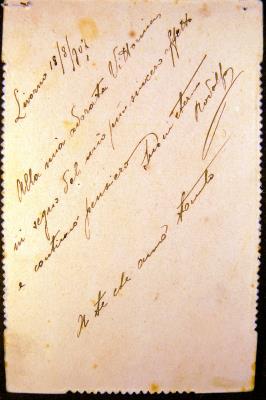 Livorno 18/8/902
Alla mia adorata Vittorina
in segno del mio più sincero affetto
e continuo pensiero
Rodolfo
A te che amo tanto